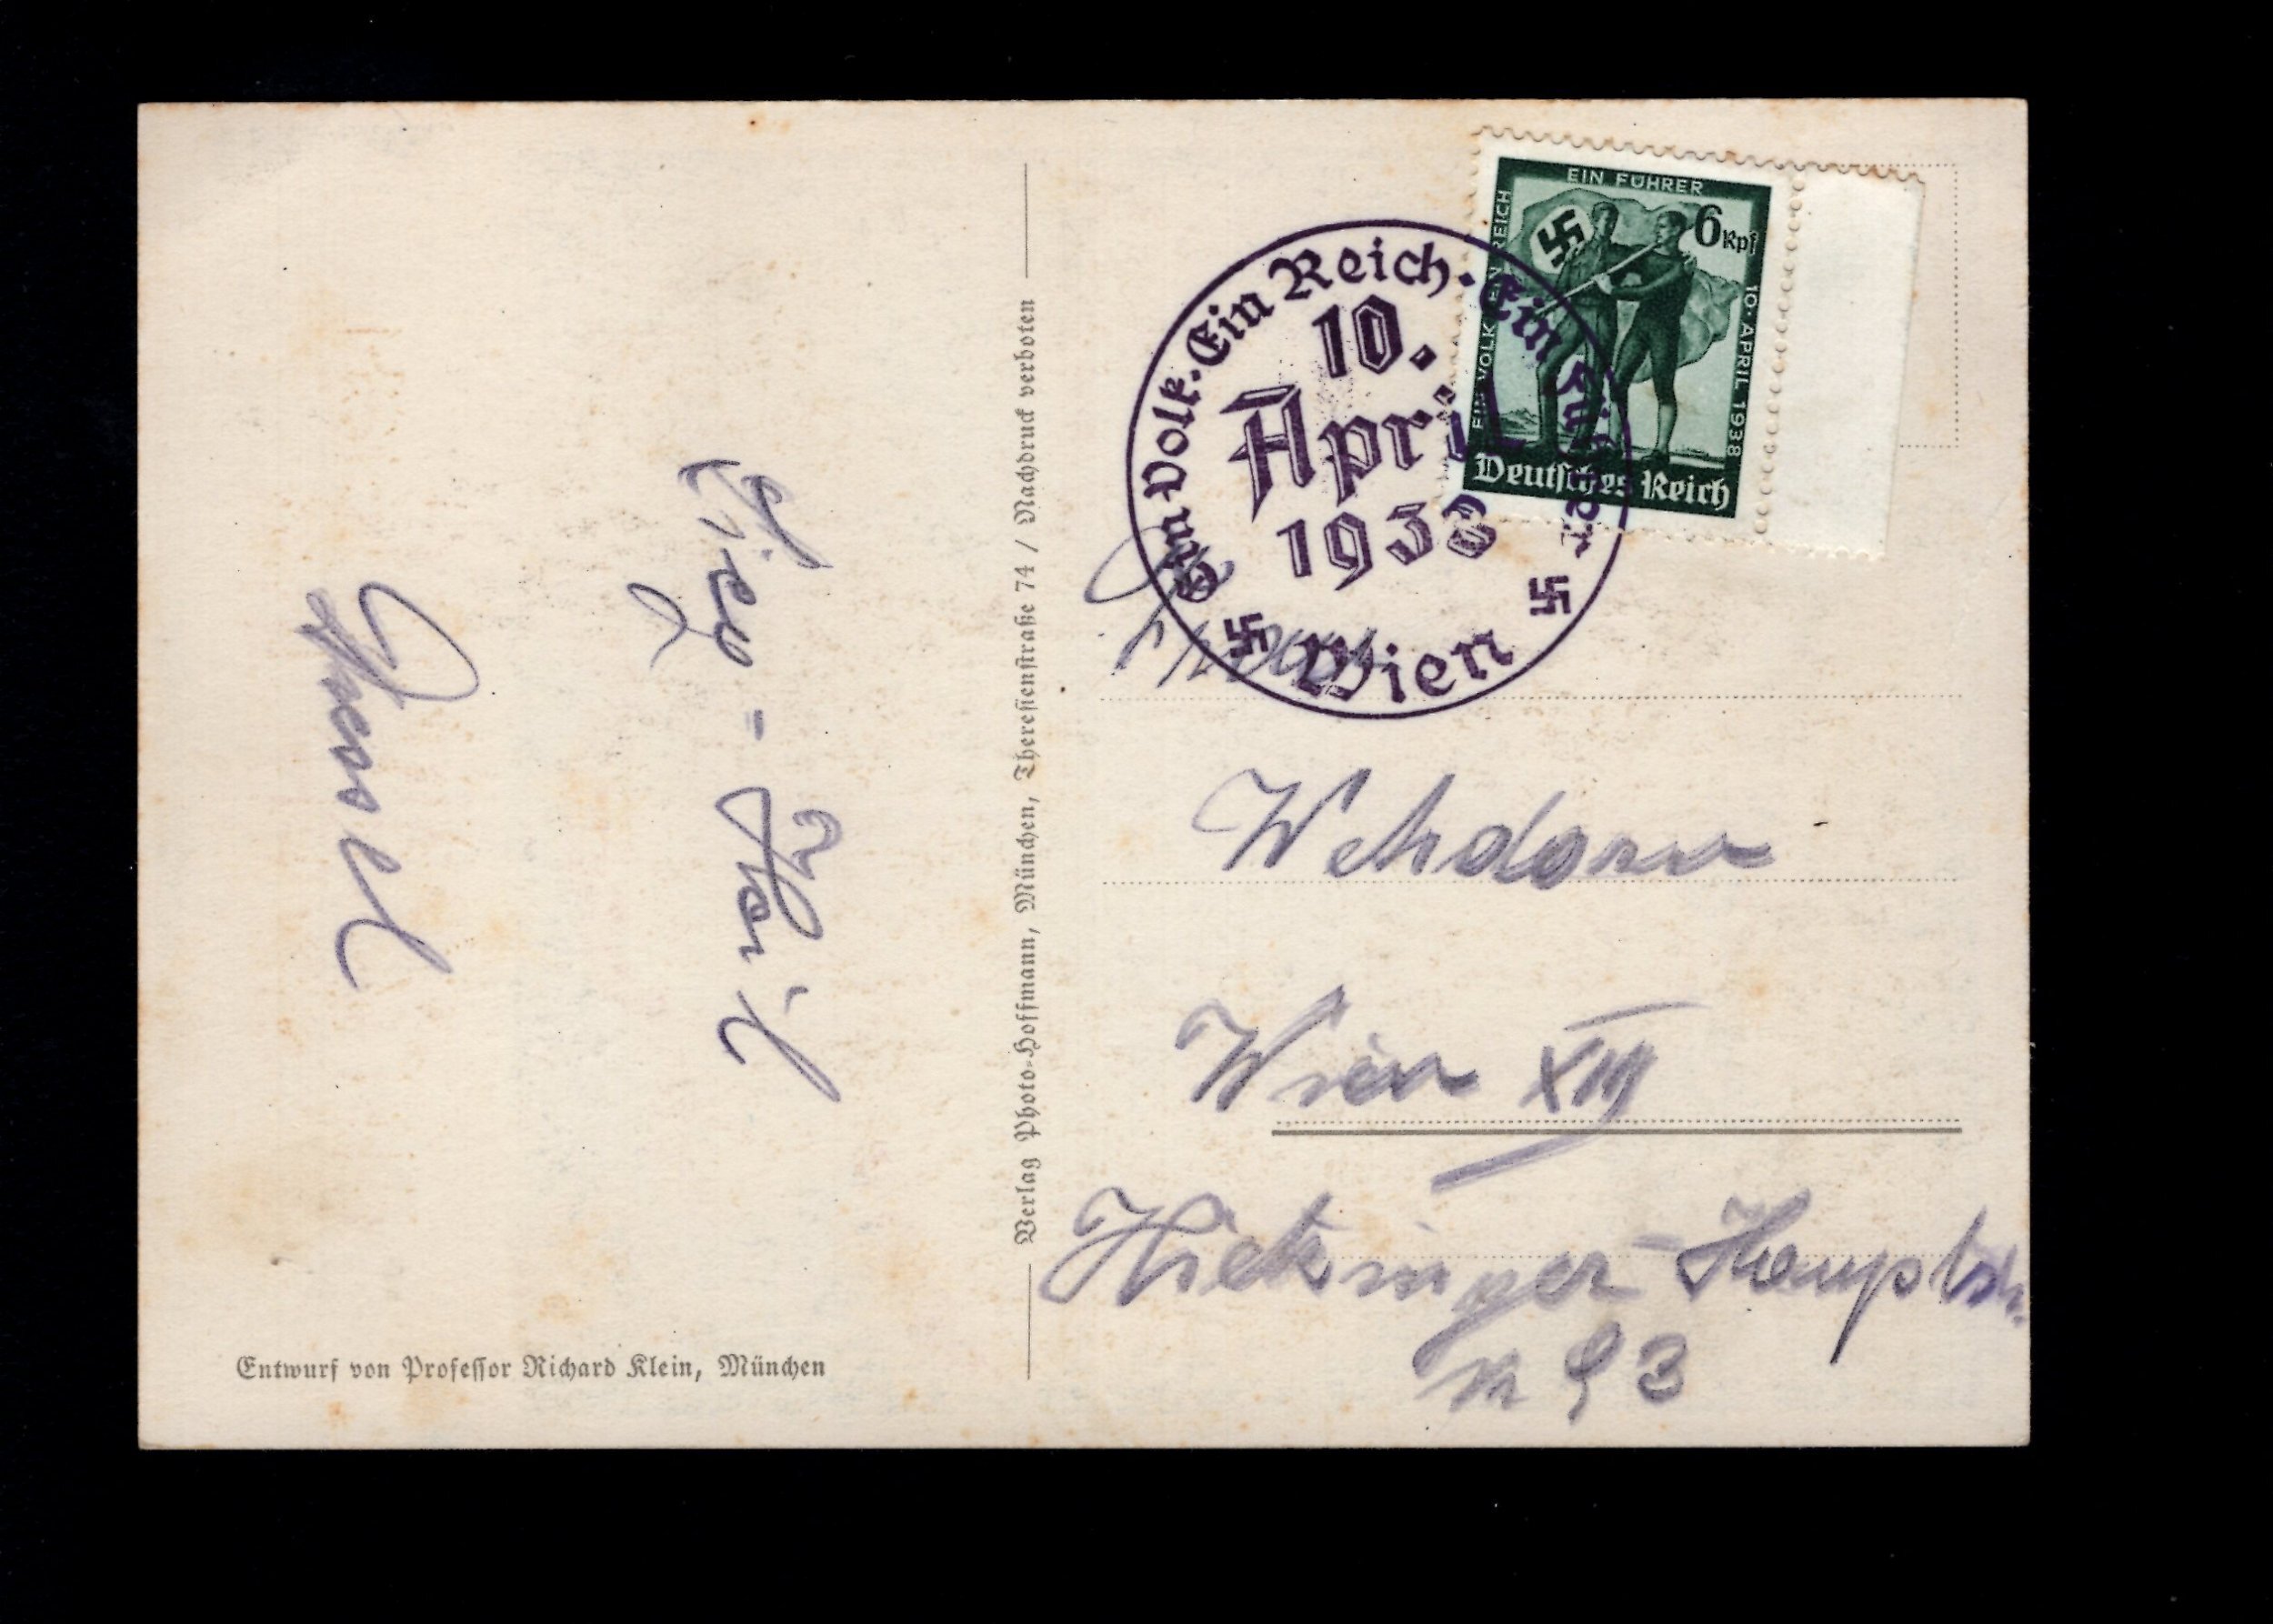 Sieg-Heil
Entwurf von Professor Richard Klein, München
Verlag Photo-Hoffmann, München, Theresienstraße 74 / Nachdruck verboten
EIN VOLK EIN REICH
EIN FÜHRER
10. APRIL 1938
6 Rpf
Deutsches Reich
Ein Volk. Ein Reich. Ein Führer
10.
April
1938
Wien
Wehdorn
Wien XIII
Hietzinger-Hauptstr.
93